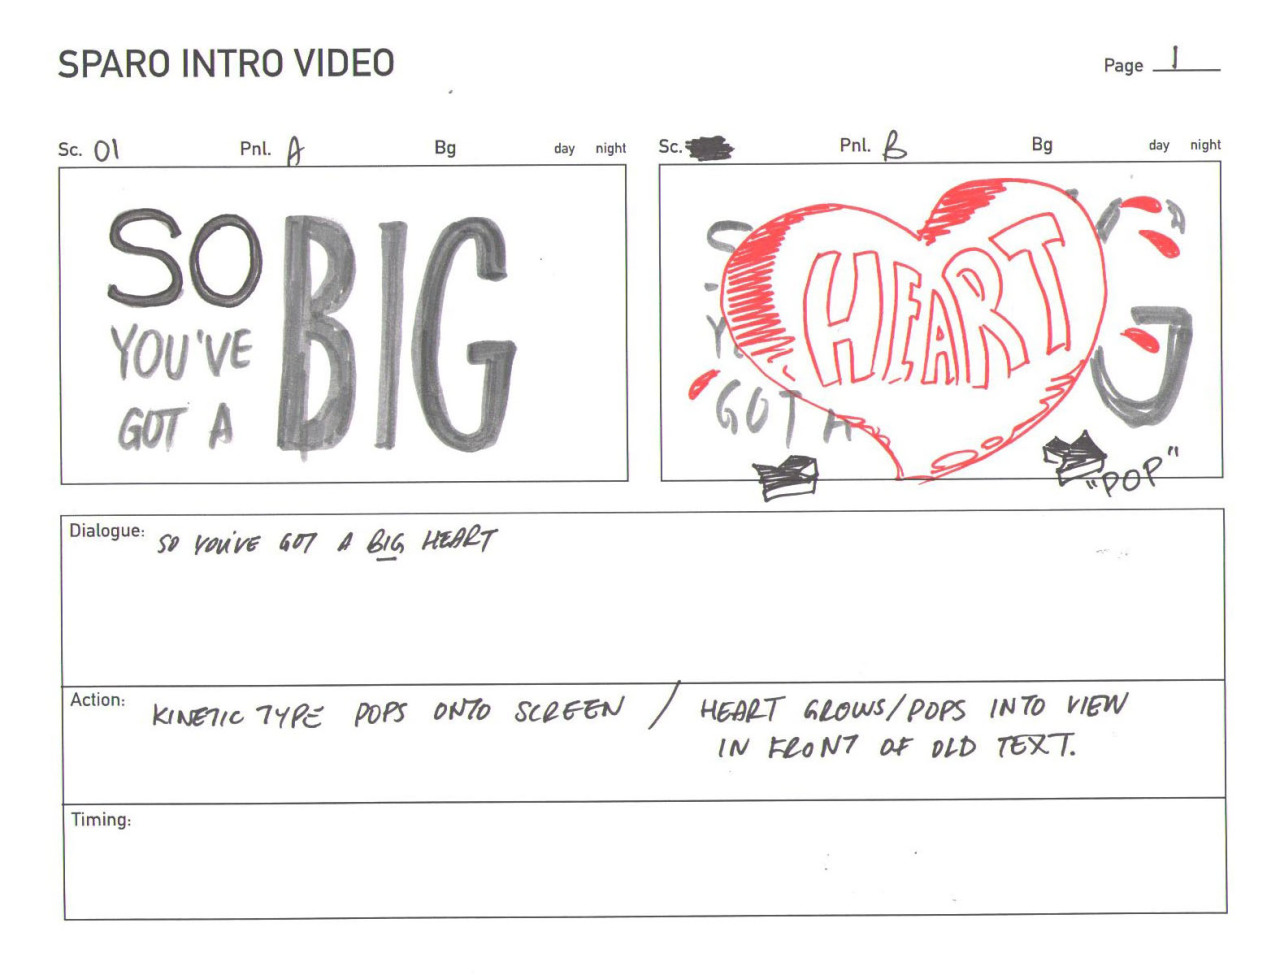 SPARO INTRO VIDEO
Page 1
Sc. 01 Pnl. A Bg day night
SO
YOU'VE
GOT A
BIG
Sc. Pnl. B Bg day night
HEART
GOT A
G
"POP"
Dialogue: SO YOU'VE GOT A BIG HEART
Action: KINETIC TYPE POPS ONTO SCREEN / HEART GROWS/POPS INTO VIEW
IN FRONT OF OLD TEXT.
Timing: